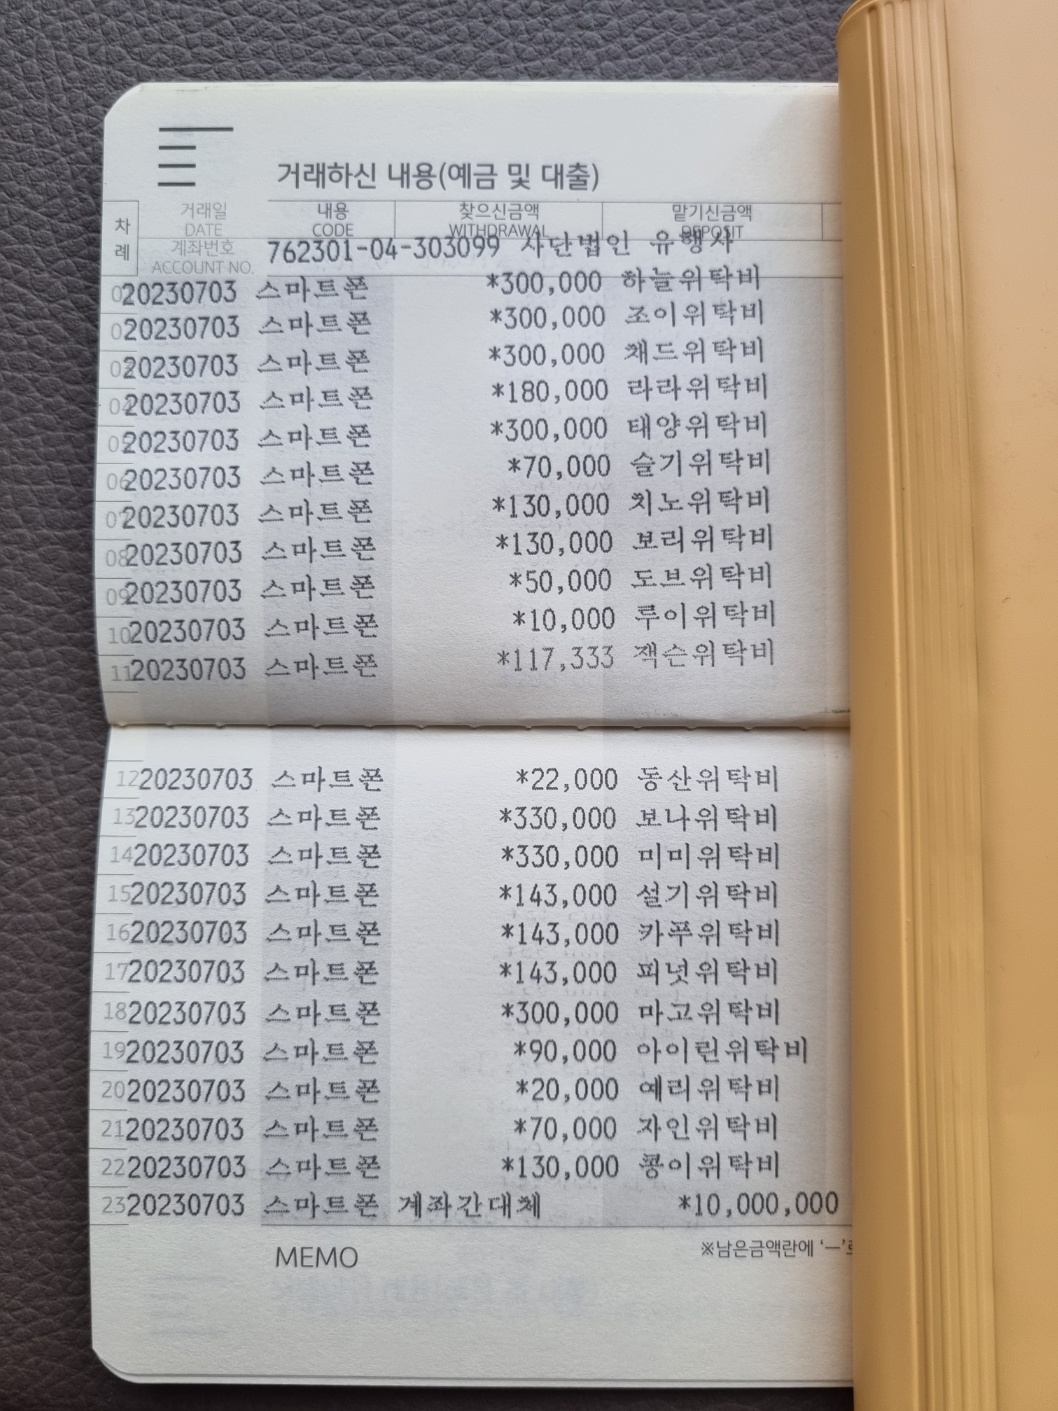 거래하신 내용(예금 및 대출)
차례 거래일 DATE 계좌번호 ACCOUNT NO. 내용 CODE 찾으신금액 WITHDRAWAL 맡기신금액 DEPOSIT
762301-04-303099 사단법인 유행사
20230703 스마트폰 *300,000 하늘위탁비
20230703 스마트폰 *300,000 조이위탁비
20230703 스마트폰 *300,000 채드위탁비
20230703 스마트폰 *180,000 라라위탁비
20230703 스마트폰 *300,000 태양위탁비
0620230703 스마트폰 *70,000 슬기위탁비
0720230703 스마트폰 *130,000 치노위탁비
0820230703 스마트폰 *130,000 보리위탁비
0920230703 스마트폰 *50,000 도브위탁비
1020230703 스마트폰 *10,000 루이위탁비
1120230703 스마트폰 *117,333 잭슨위탁비
1220230703 스마트폰 *22,000 동산위탁비
1320230703 스마트폰 *330,000 보나위탁비
1420230703 스마트폰 *330,000 미미위탁비
1520230703 스마트폰 *143,000 설기위탁비
1620230703 스마트폰 *143,000 카푸위탁비
1720230703 스마트폰 *143,000 피넛위탁비
1820230703 스마트폰 *300,000 마고위탁비
1920230703 스마트폰 *90,000 아이린위탁비
2020230703 스마트폰 *20,000 예리위탁비
2120230703 스마트폰 *70,000 자인위탁비
2220230703 스마트폰 *130,000 콩이위탁비
2320230703 스마트폰 계좌간대체 *10,000,000
MEMO ※남은금액란에 '－'